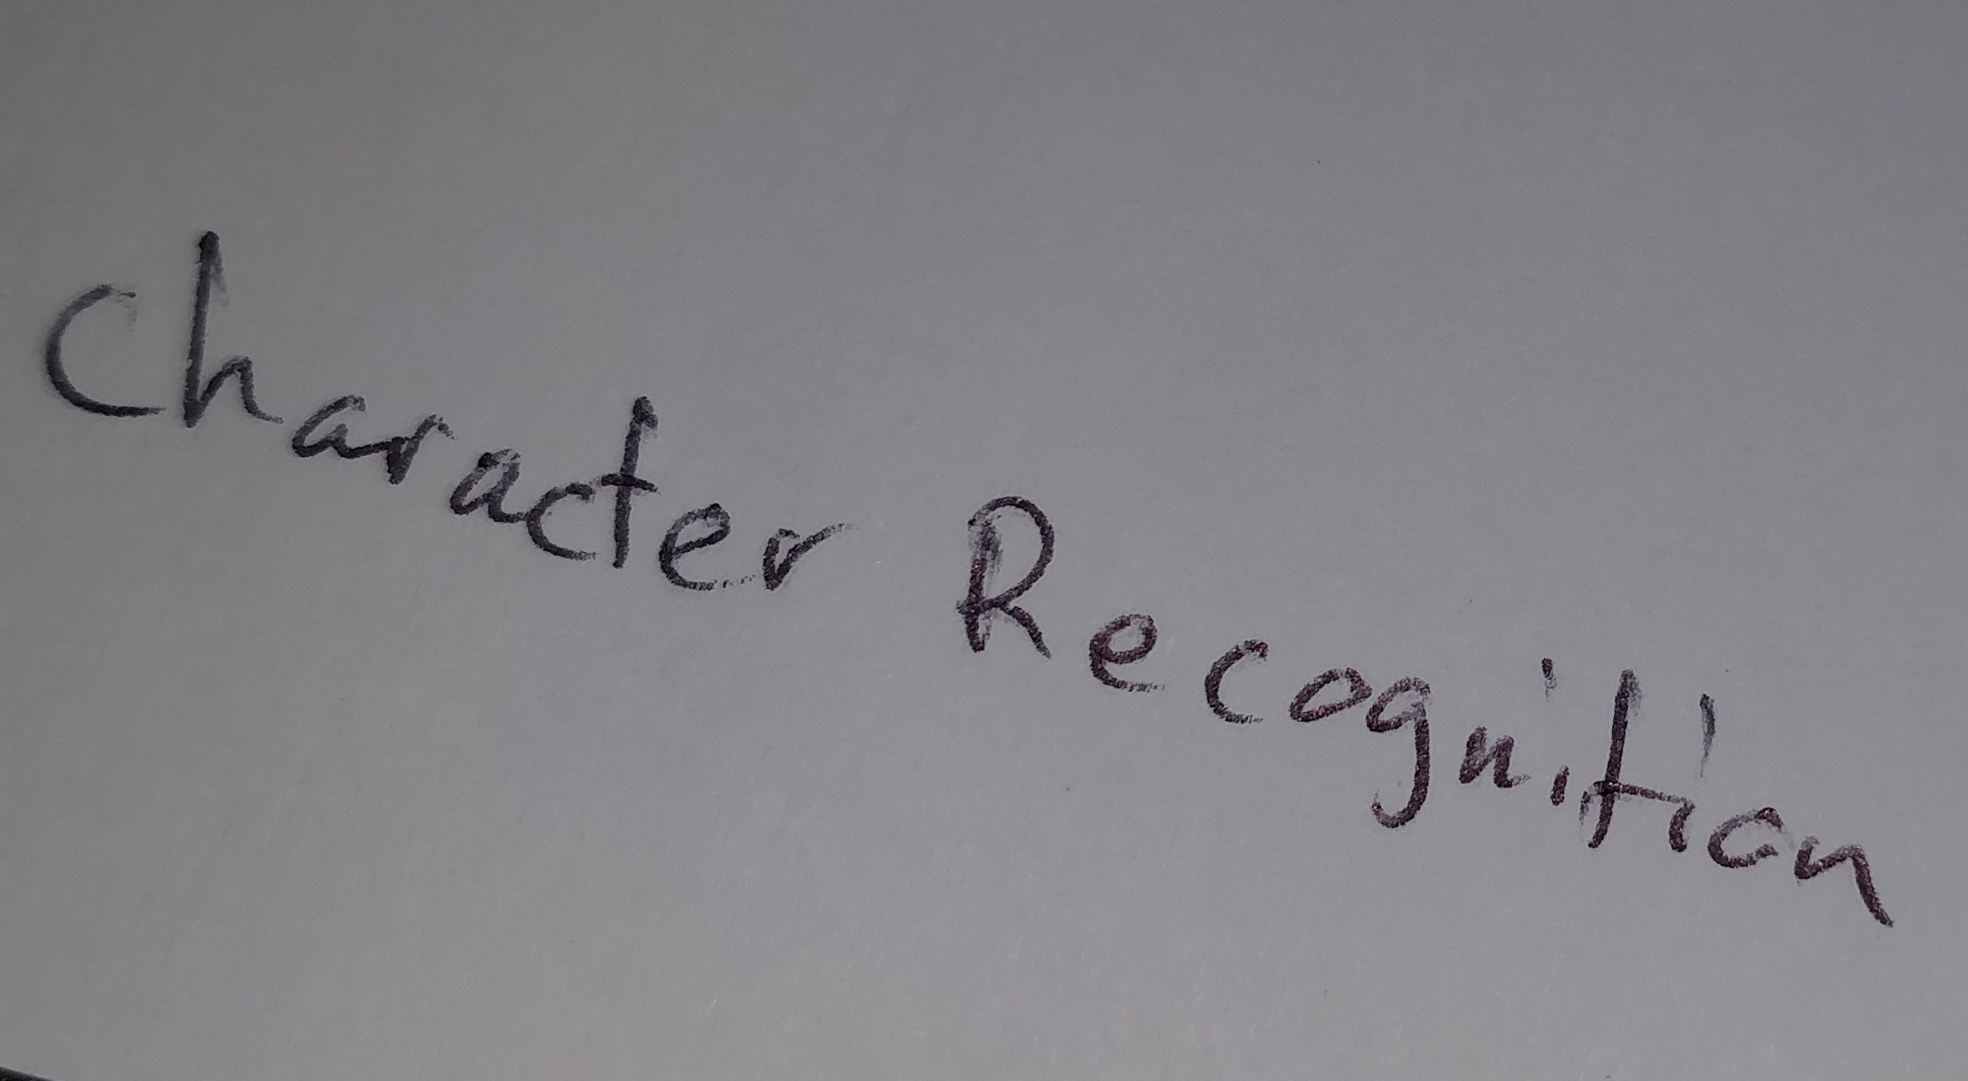 Character Recognition